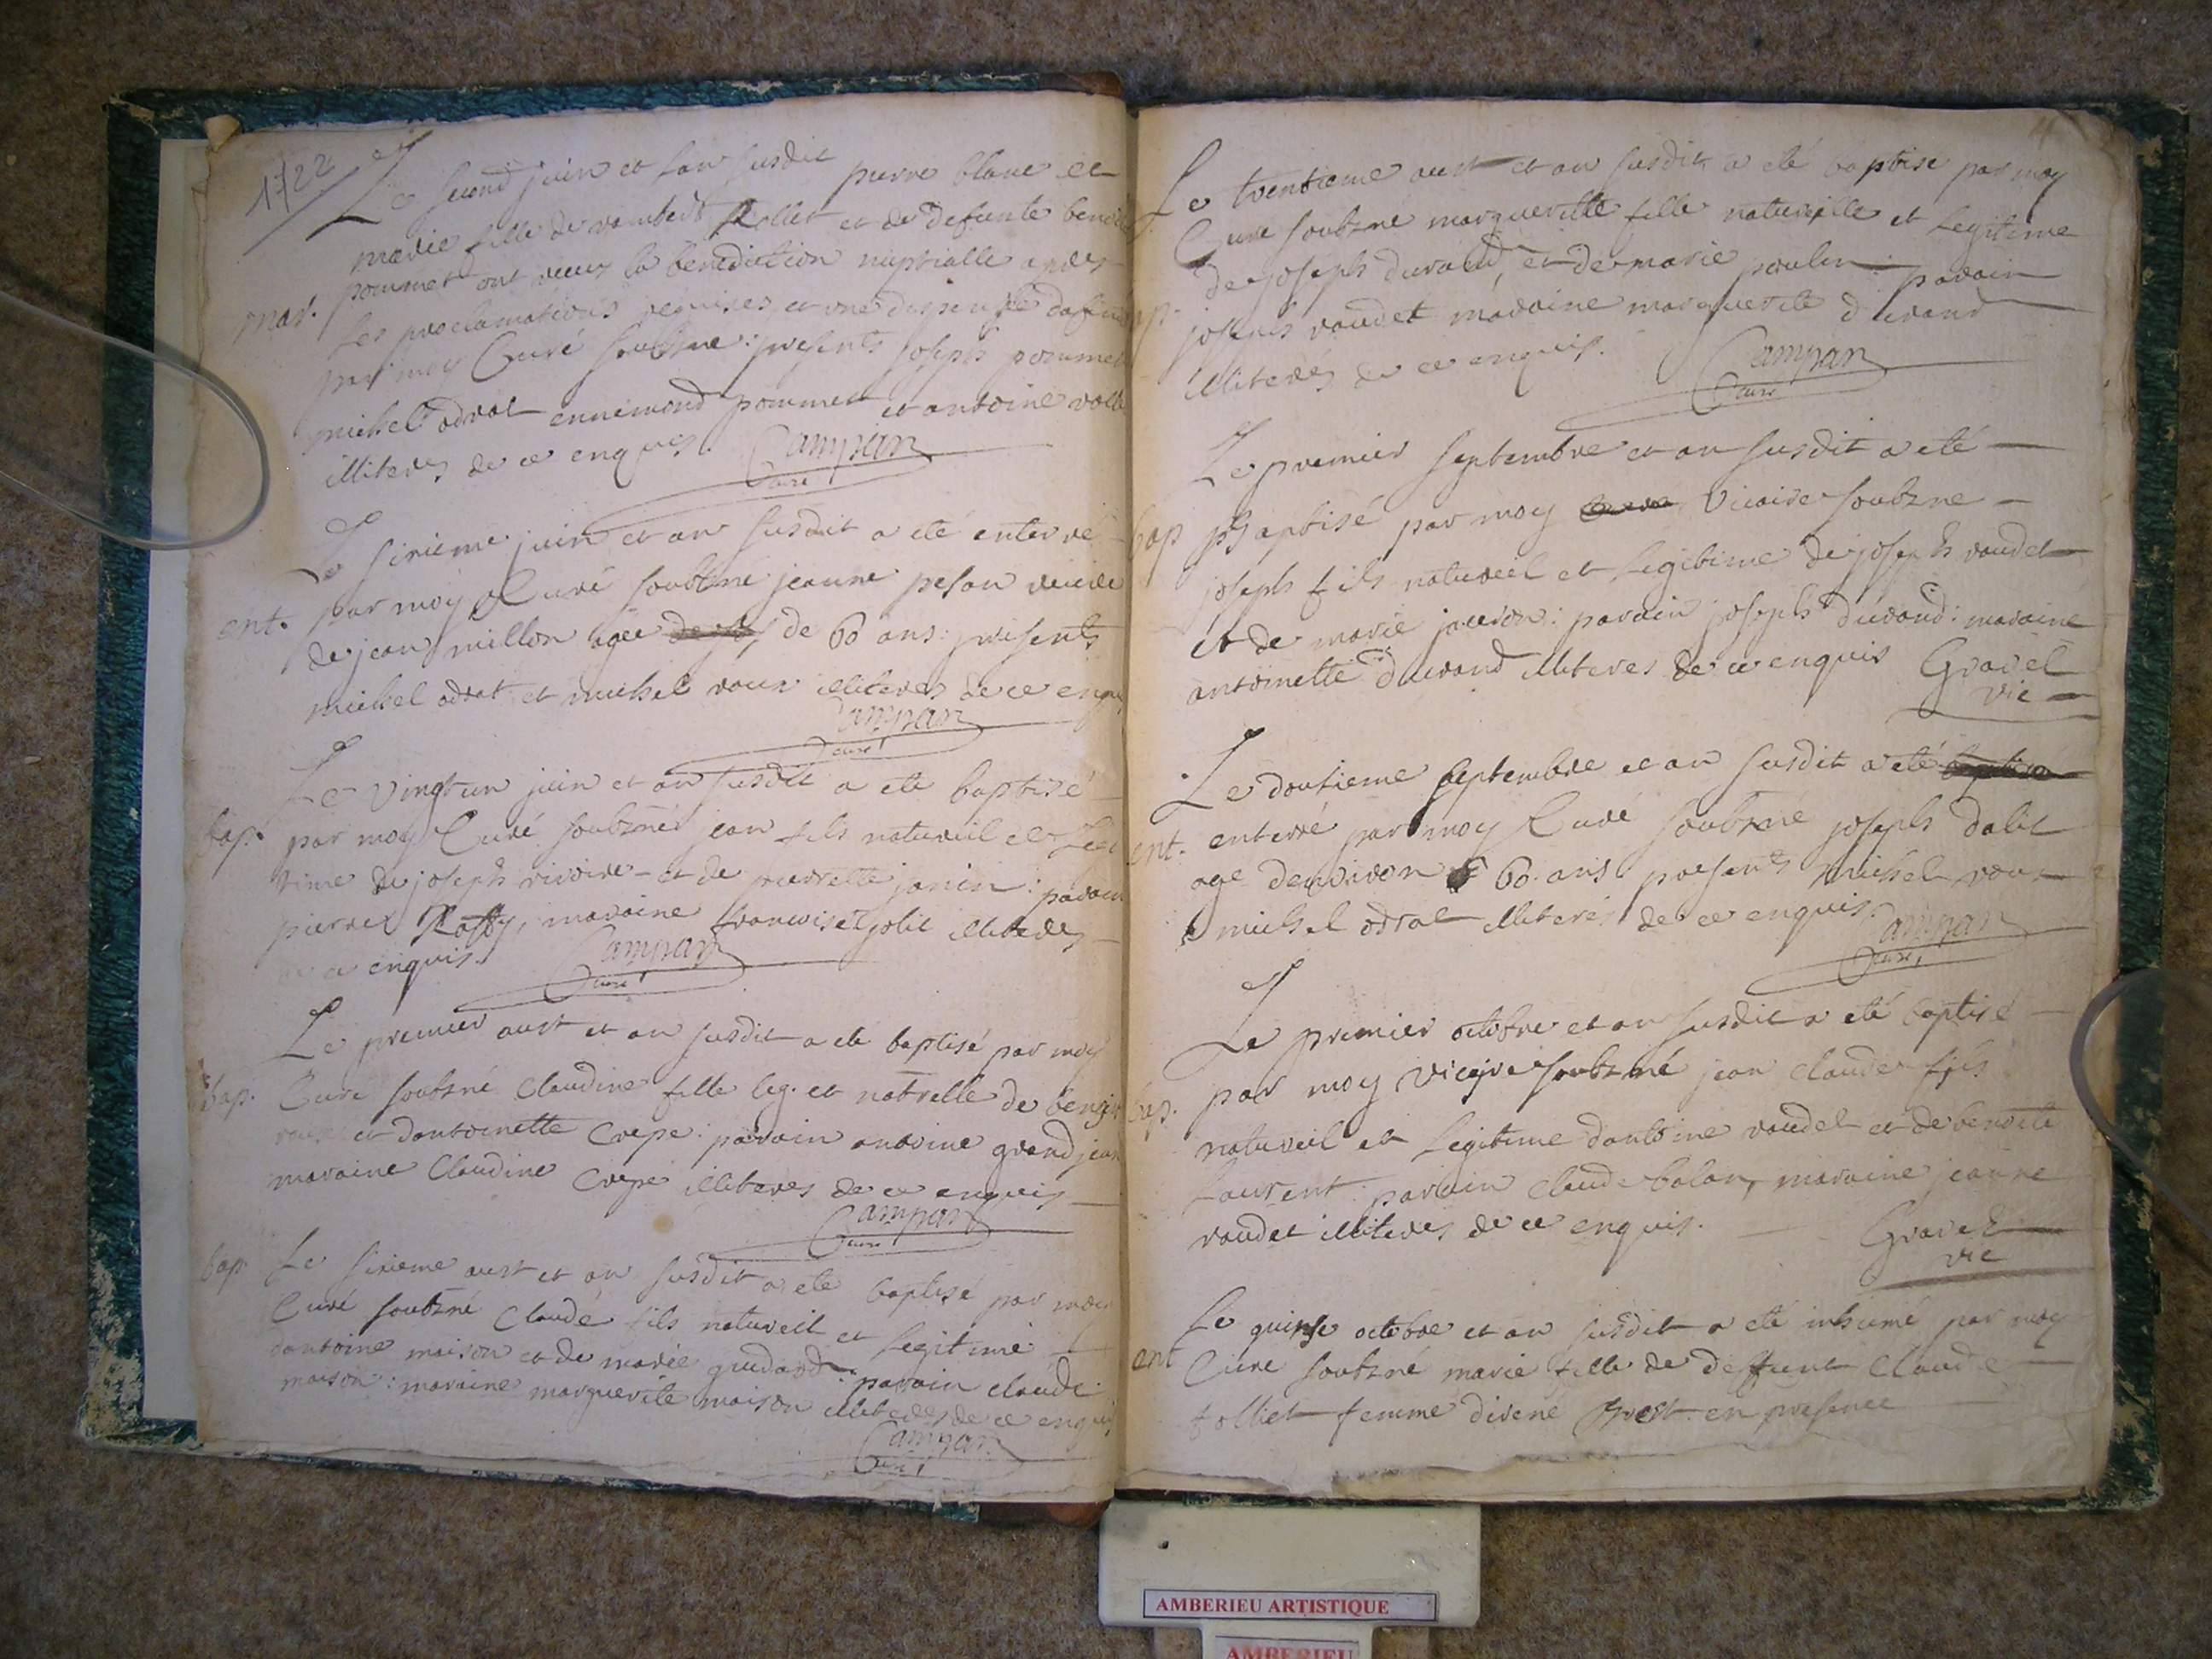 1722
Le second juin et lan susdit pierre blanc et
marie fille de rambert Rollet et de defunte benoite
pommet ont receu la benediction nuptialle apres
mar. les proclamations requises et une dispense
par moy Curé soubzné : presents joseph pommet
michel odrat ennemond pommet et antoine
illiteres de ce enquis. Campan
Curé
Le sixieme juin et an susdit a eté enterré
ent. par moy Curé soubzné jeanne peson veuve
de jean millon agée de 60 ans : presents
michel odrat et michel roux illiteres de ce enquis
Campan
Curé
Le vingt un juin et an susdit a eté baptisé
bap. par moy Curé soubzné jean fils natureil et legi
time de joseph rivoire et de pierrette janin : parain
pierre Raffy, maraine francoise jolit illiteres
de ce enquis. Campan
Curé
Le premier aust et an susdit a eté baptisé par moy
bap. Curé soubzné Claudine fille leg. et natrelle de benoit
roux et dantoinette Crepe : parain antoine grand jean
maraine Claudine Crepe illiteres de ce enquis
Campan
Curé
bap. Le sixieme aust et an susdit a eté baptisé par moy
Curé soubzné Claude fils natureil et legitime
dantoine maison et de marie gudard : parain claude
maison : maraine marguerite maison illiteres de ce enquis
Campan
Curé
Le trentieme aust et an susdit a eté baptisé par moy
Curé soubzné marguerite fille natureille et legitime
de joseph durand, et de marie poulin : parain
joseph raudet maraine marguerite durand
illiteres de ce enquis. Campan
Curé
Le premier septembre et an susdit a eté
bap baptisé par moy Vicaire soubzné
joseph fils natureil et legitime de joseph raudet
et de marie : parain joseph durand : maraine
antoinette durand illiteres de ce enquis Gravel
vic
Le doutieme septembre et an susdit a eté
ent. enterré par moy Curé soubzné joseph dalit
agé denviron 60 ans presents michel roux
michel odrat illiterés de ce enquis. Campan
Curé
Le premier octobre et an susdit a eté baptisé
bap. par moy Vicaire soubzné jean claude fils
natureil et legitime dantoine raudet et de benoite
laurent : parain claude balan, maraine jeanne
raudet illiteres de ce enquis. Gravel
vic
Le quinse octobre et an susdit a eté inhumé par moy
ent Curé soubzné marie fille de deffunt Claude
tolliet femme direné prost en presence
AMBERIEU ARTISTIQUE
AMBERIEU